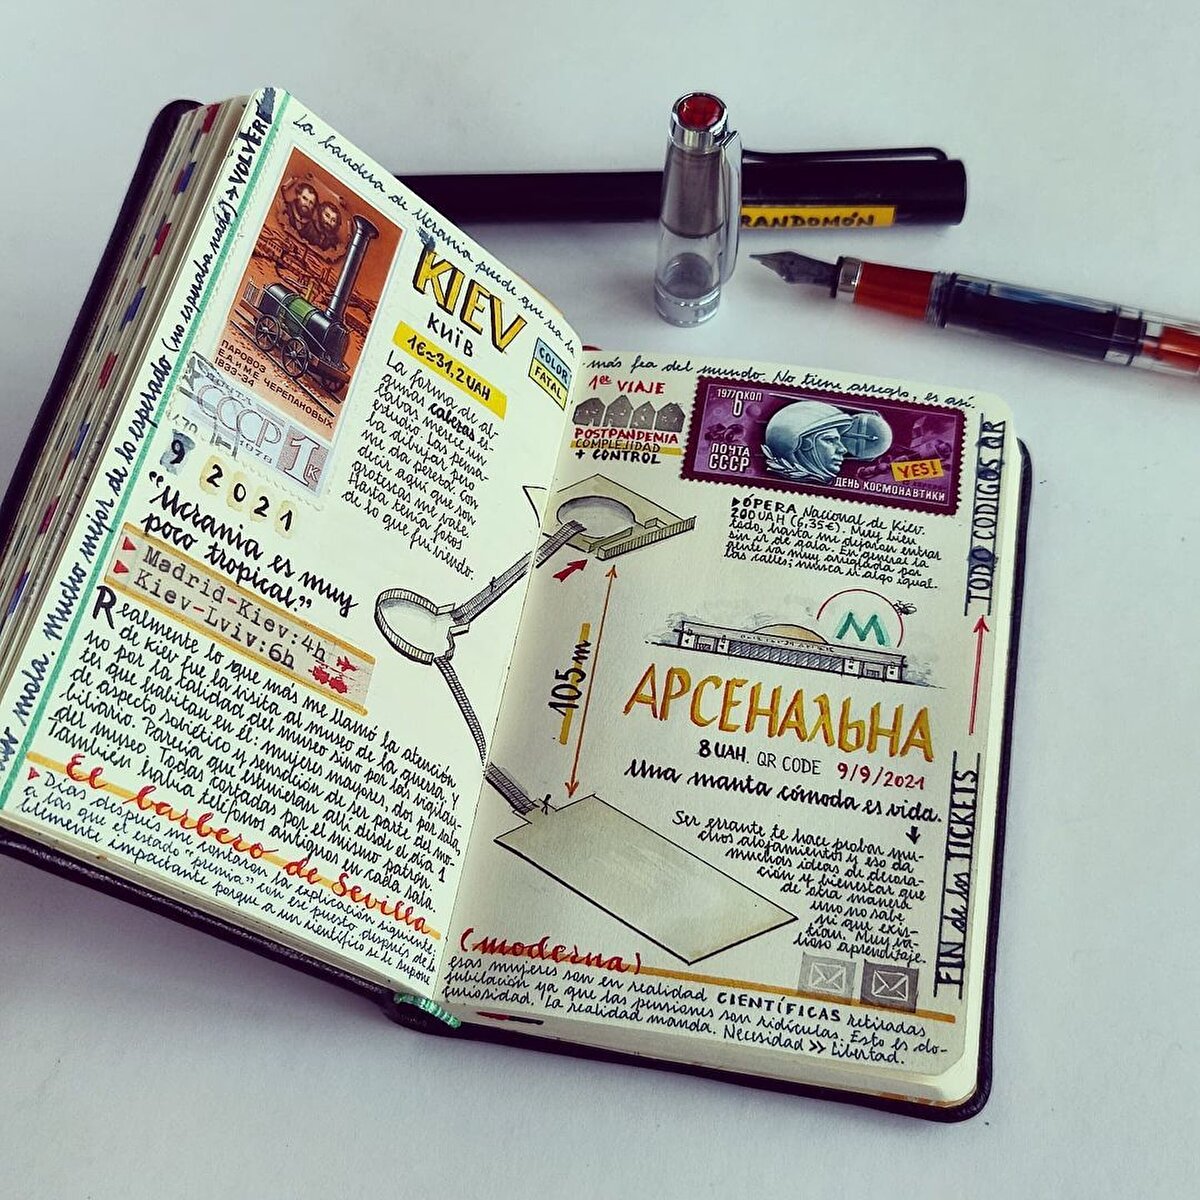 VOLVER
mola. Mucho mejor de lo esperado (no esperaba nada) → VOLVER
La bandera de Ucrania puede que sea la
más fea del mundo. No tiene arreglo, es así.
ПАРОВОЗ
Е.А.и М.Е. ЧЕРЕПАНОВЫХ
1833-34
ПОЧТА
СССР 1К
1978
KIEV
КИЇВ
1€≈31,2UAH
COLOR
FATAL
La forma de al-
gunas cabezas es-
tudio. Las pensa-
ba dibujar pero
me da pereza
decir aquí que son
grotescas me vale.
Hasta tenía fotos
de lo que fui viendo.
9
2021
"Ucrania es muy
poco tropical."
Madrid-Kiev:4h
Kiev-Lviv:6h
Realmente lo que más me llamó la atención
de Kiev fue la visita al museo de la guerra. Y
no por la calidad del museo sino por las vigilan-
tes que habitan en él: mujeres mayores, dos por sala,
de aspecto soviético y sensación de ser parte del mo-
biliario. Parecía que estuvieran allí desde el día 1
del museo. Todas cortadas por el mismo patrón.
También había teléfonos antiguos en cada sala.
El barbero de Sevilla
Días después me contaron la explicación siguiente:
a las que el estado "premia" con ese puesto después de la
1er VIAJE
POSTPANDEMIA
COMPLEJIDAD
+ CONTROL
1977 6 КОП
ПОЧТА
СССР
YES!
ДЕНЬ КОСМОНАВТИКИ
▶ÓPERA Nacional de Kiev.
200UAH (6,35€). Muy bien
todo, hasta me dejaron entrar
sin ir de gala. En general la
gente va muy arreglada por
las calles; nunca vi algo igual.
105m
M
АРСЕНАЛЬНА
8UAH. QR CODE 9/9/2021
Una manta cómoda es vida.
Ser errante te hace probar mu-
chos alojamientos y eso da
muchas ideas de decora-
ción y bienestar que
de otra manera
uno no sabe
ni que exis-
tían. Muy va-
lioso aprendizaje.
(moderna)
esas mujeres son en realidad CIENTÍFICAS retiradas
jubilación ya que las pensiones son ridículas. Esto es do-
blemente impactante porque a un científico se le supone
curiosidad. La realidad manda. Necesidad >> Libertad.
FIN de los TICKETS
TODO CÓDIGOS QR
RANDOMÓN